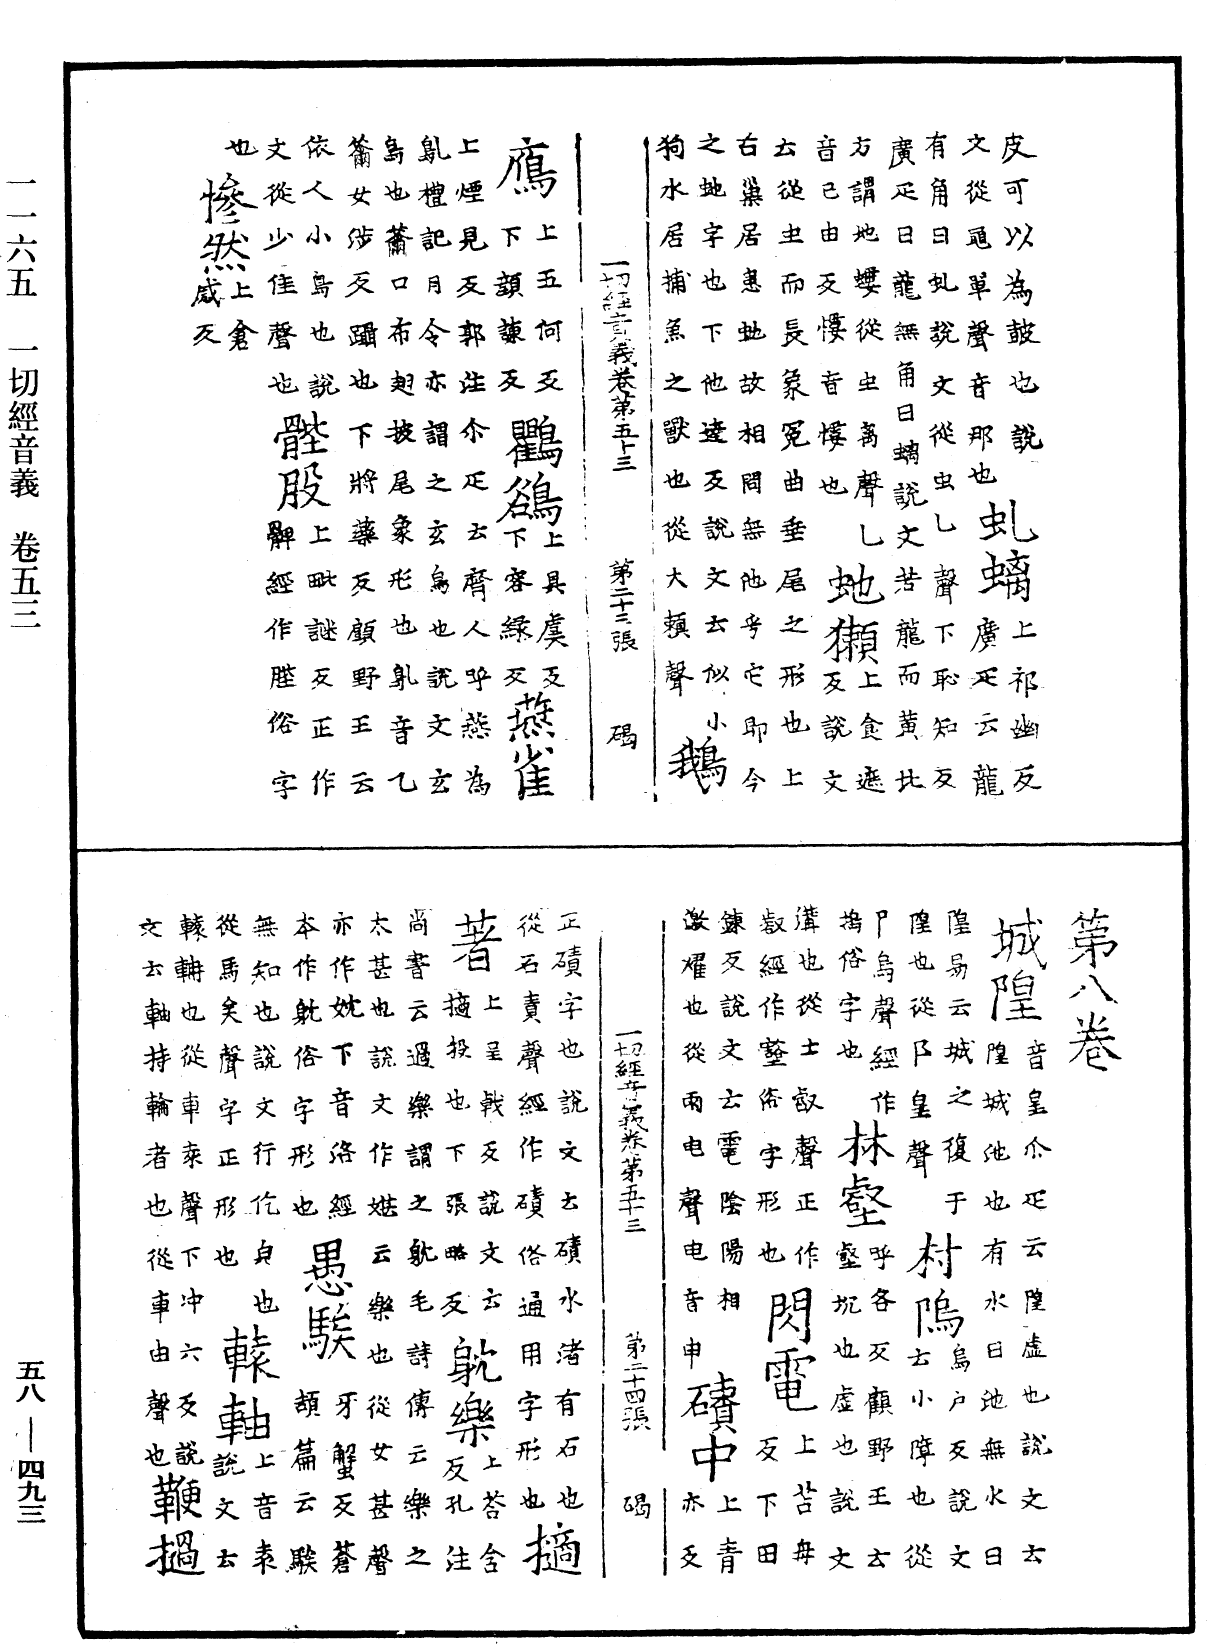 皮可以為鼓也說
文從黽單聲音那也
虬螭
上祁幽反
廣疋云龍
有角曰虬說文從虫乚聲下恥知反
廣疋曰龍無角曰螭說文若龍而黃北
方謂地螻從虫离聲乚
音已由反慺音慺也
虵獺
上食遮
反說文
云從虫而長象冤曲垂尾之形也上
右巢居患虵故相問無他乎它即今
之虵字也下他達反說文云似小
狗水居捕魚之獸也從犬賴聲
鵝
一切經音義卷第五十三 第二十三張 碣
鴈
上五何反
下顏諫反
鸜鵒
上具虞反
下容綠反
燕雀
上煙見反郭注尒疋云齊人呼燕為
鳦禮記月令亦謂之玄鳥也說文玄
鳥也籋口布翅披尾象形也鳦音乙
籋女涉反躡也下將藥反顧野王云
依人小鳥也說
文從少隹聲也
髀股
上毗謎反正作
髀經作䏶俗字
也
慘然
上倉
感反
第八卷
城隍
音皇尒疋云隍虛也說文云
隍城池也有水曰池無水曰
隍易云城之復于
隍也從阝皇聲
村隖
烏戶反說文
云小障也從
阝烏聲經作
塢俗字也
林壑
呼各反顧野王云
壑坑也虛也說文
溝也從土㕡聲正作
㕡經作壑俗字形也
閃電
上苫冉
反下田
鍊反說文云電陰陽相
激耀也從雨电聲电音申
磧中
上青
亦反
一切經音義卷第五十三 第二十四張 碣
正磧字也說文云磧水渚有石也
從石責聲經作磧俗通用字形也
擿
著
上呈戟反說文云
擿投也下張略反
躭樂
上荅含
反孔注
尚書云過樂謂之躭毛詩傳云樂之
太甚也說文作媅云樂也從女甚聲
亦作妉下音洛經
本作躭俗字形也
愚騃
牙蟹反蒼
頡篇云騃
無知也說文行仡皃也
從馬矣聲字正形也
轅軸
上音袁
說文云
轅輈也從車袁聲下冲六反說
文云軸持輪者也從車由聲也
鞭撾
一一六五 一切經音義 卷五三
五八—四九三